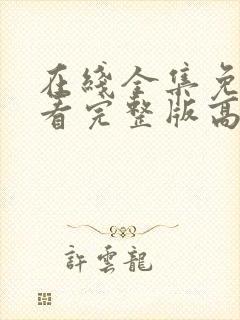 在綫全集免
看完整版高
許雲龍